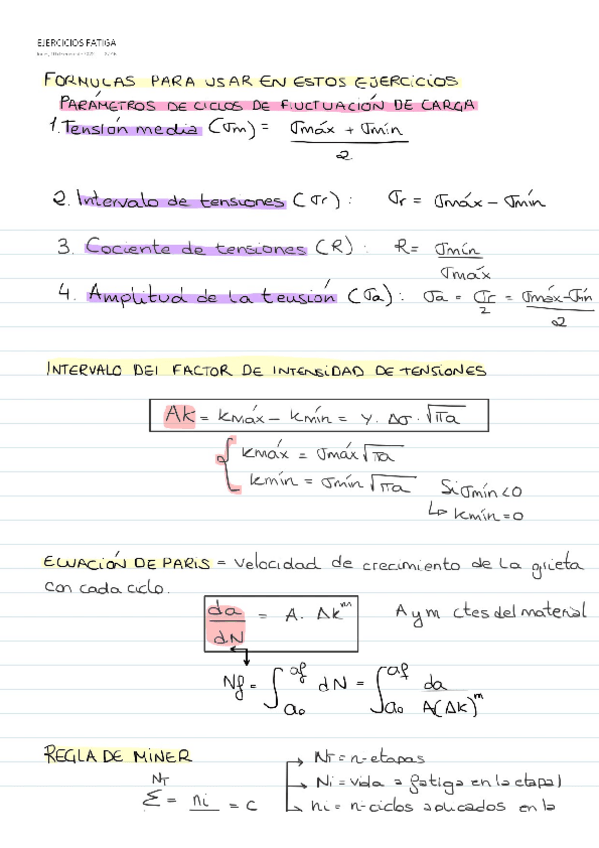 EJERCICIOS FATIGA
FORMULAS PARA USAR EN ESTOS EJERCICIOS
PARÁMETROS DE CICLOS DE FLUCTUACIÓN DE CARGA
1. Tensión media (σm) = σmáx + σmín / 2
2. Intervalo de tensiones (σr) : σr = σmáx - σmín
3. Cociente de tensiones (R) : R = σmín / σmáx
4. Amplitud de la tensión (σa) : σa = σr / 2 = σmáx-σmín / 2
INTERVALO DEL FACTOR DE INTENSIDAD DE TENSIONES
Δk = kmáx - kmín = Y. Δσ. √πa
kmáx = σmáx √πa
kmín = σmín √πa Si σmín < 0
↳ kmín = 0
ECUACIÓN DE PARIS = velocidad de crecimiento de la grieta
con cada ciclo.
da / dN = A. Δk^m A y m ctes del material
Nf = ∫_ao^af dN = ∫_ao^af da / A(Δk)^m
REGLA DE MINER → NT = nº etapas
NT → Ni = vida a fatiga en la etapa
Σ = ni = C → ni = nº ciclos aplicados en la